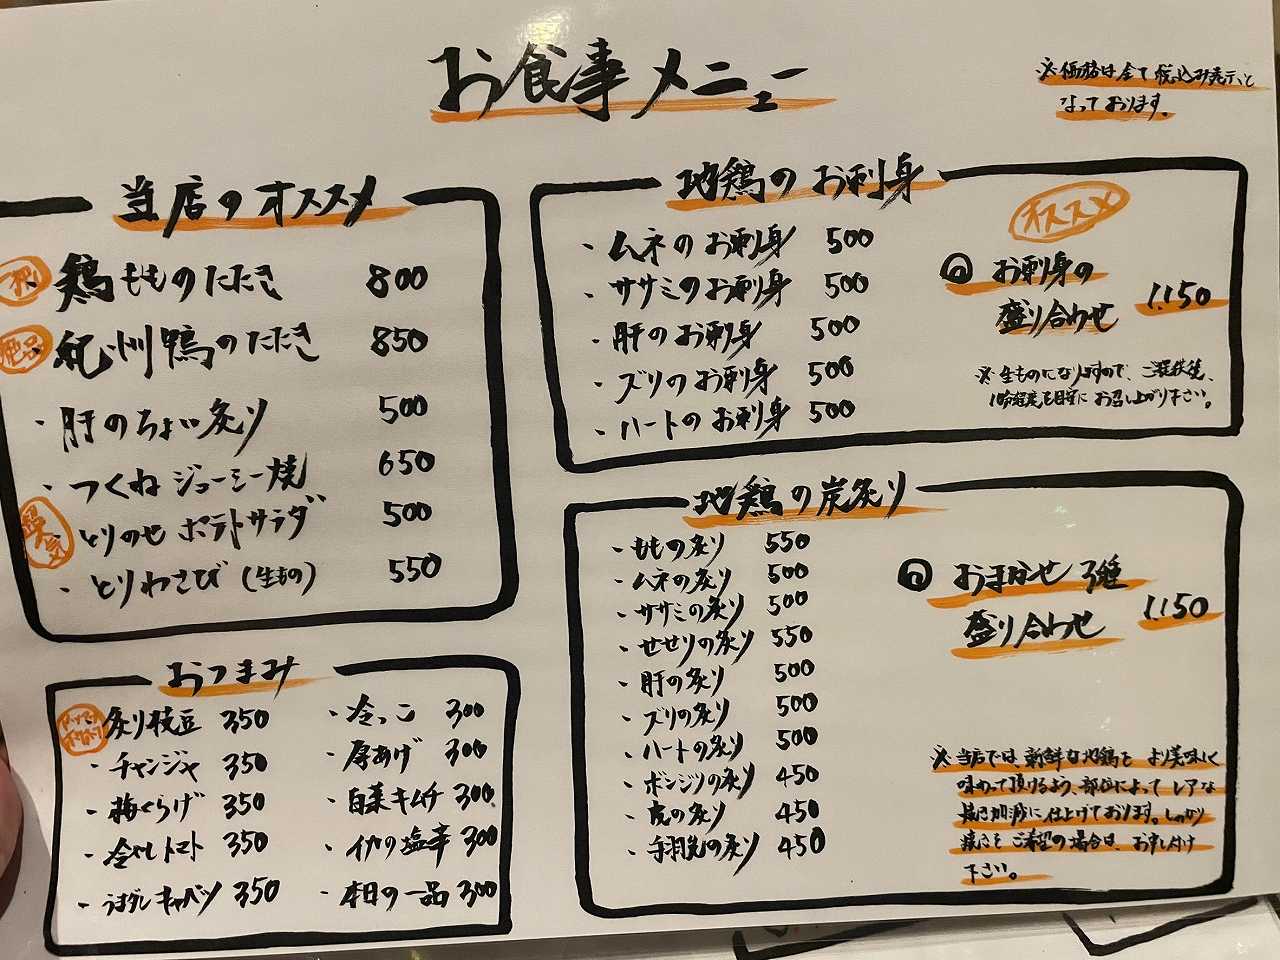 お食事メニュー
※価格は全て税込み表示と
なっております。
当店のオススメ
鶏もものたたき 800
絶品
紀州鴨のたたき 850
・肝のちょい炙り 500
・つくねジューシー焼 650
人気
・とりのせポテトサラダ 500
・とりわさび(生もの) 550
おつまみ
・炙り枝豆 350
・チャンジャ 350
・梅くらげ 350
・冷やしトマト 350
・うまダレキャベツ 350
・冷っこ 300
・厚あげ 300
・白菜キムチ 300
・イカの塩辛 300
・本日の一品 300
地鶏のお刺身
・ムネのお刺身 500
・ササミのお刺身 500
・肝のお刺身 500
・ズリのお刺身 500
・ハートのお刺身 500
オススメ
お刺身の
盛り合わせ 1.150
※生ものになりますので、ご提供後、
1時間程度を目安にお召し上がり下さい。
地鶏の炭炙り
・ももの炙り 550
・ムネの炙り 500
・ササミの炙り 500
・せせりの炙り 550
・肝の炙り 500
・ズリの炙り 500
・ハートの炙り 500
・ボンジリの炙り 450
・皮の炙り 450
・手羽先の炙り 450
おまかせ3種
盛り合わせ 1.150
※当店では、新鮮な地鶏をより美味しく
味わって頂けるよう、部位によってレアな
焼き加減に仕上げております。しっかり
焼きをご希望の場合は、お申し付け
下さい。